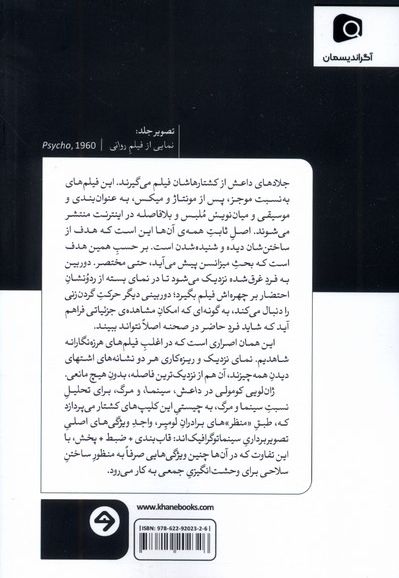 آگراندیسمان
تصویر جلد:
نمایی از فیلم روانی | Psycho, 1960
جلادهای داعش از کشتارهاشان فیلم می‌گیرند. این فیلم‌های
به‌نسبت موجز، پس از مونتاژ و میکس، به عنوان‌بندی و
موسیقی و میان‌نویش مُلبس و بلافاصله در اینترنت منتشر
می‌شوند. اصل ثابتِ همه‌ی آن‌ها این است که هدف از
ساختن‌شان دیده و شنیده‌شدن است. بر حسبِ همین هدف
است که بحثِ میزانسن پیش می‌آید، حتی مختصر. دوربین
به فردِ غرق‌شده نزدیک می‌شود تا در نمای بسته از ردّونشانِ
احتضار بر چهره‌اش فیلم بگیرد؛ دوربینی دیگر حرکتِ گردن‌زنی
را دنبال می‌کند، به گونه‌ای که امکانِ مشاهده‌ی جزئیاتی فراهم
آید که شاید فردِ حاضر در صحنه اصلاً نتواند ببیند.
این همان اصراری است که در اغلبِ فیلم‌های هرزه‌نگارانه
شاهدیم. نمای نزدیک و ریزه‌کاری هر دو نشانه‌های اشتهای
دیدنِ همه‌چیزند، آن هم از نزدیک‌ترین فاصله، بدونِ هیچ مانعی.
ژان‌لویی کومولی در داعش، سینما، و مرگ، برای تحلیلِ
نسبتِ سینما و مرگ، به چیستیِ این کلیپ‌های کشتار می‌پردازد
که، طبقِ «منظر»های برادرانِ لومیِر، واجدِ ویژگی‌های اصلیِ
تصویربرداریِ سینماتوگرافیک‌اند: قاب‌بندی + ضبط + پخش، با
این تفاوت که در آن‌ها چنین ویژگی‌هایی صرفاً به منظورِ ساختنِ
سلاحی برای وحشت‌انگیزیِ جمعی به کار می‌رود.
www.khanebooks.com
ISBN: 978-622-92023-2-6